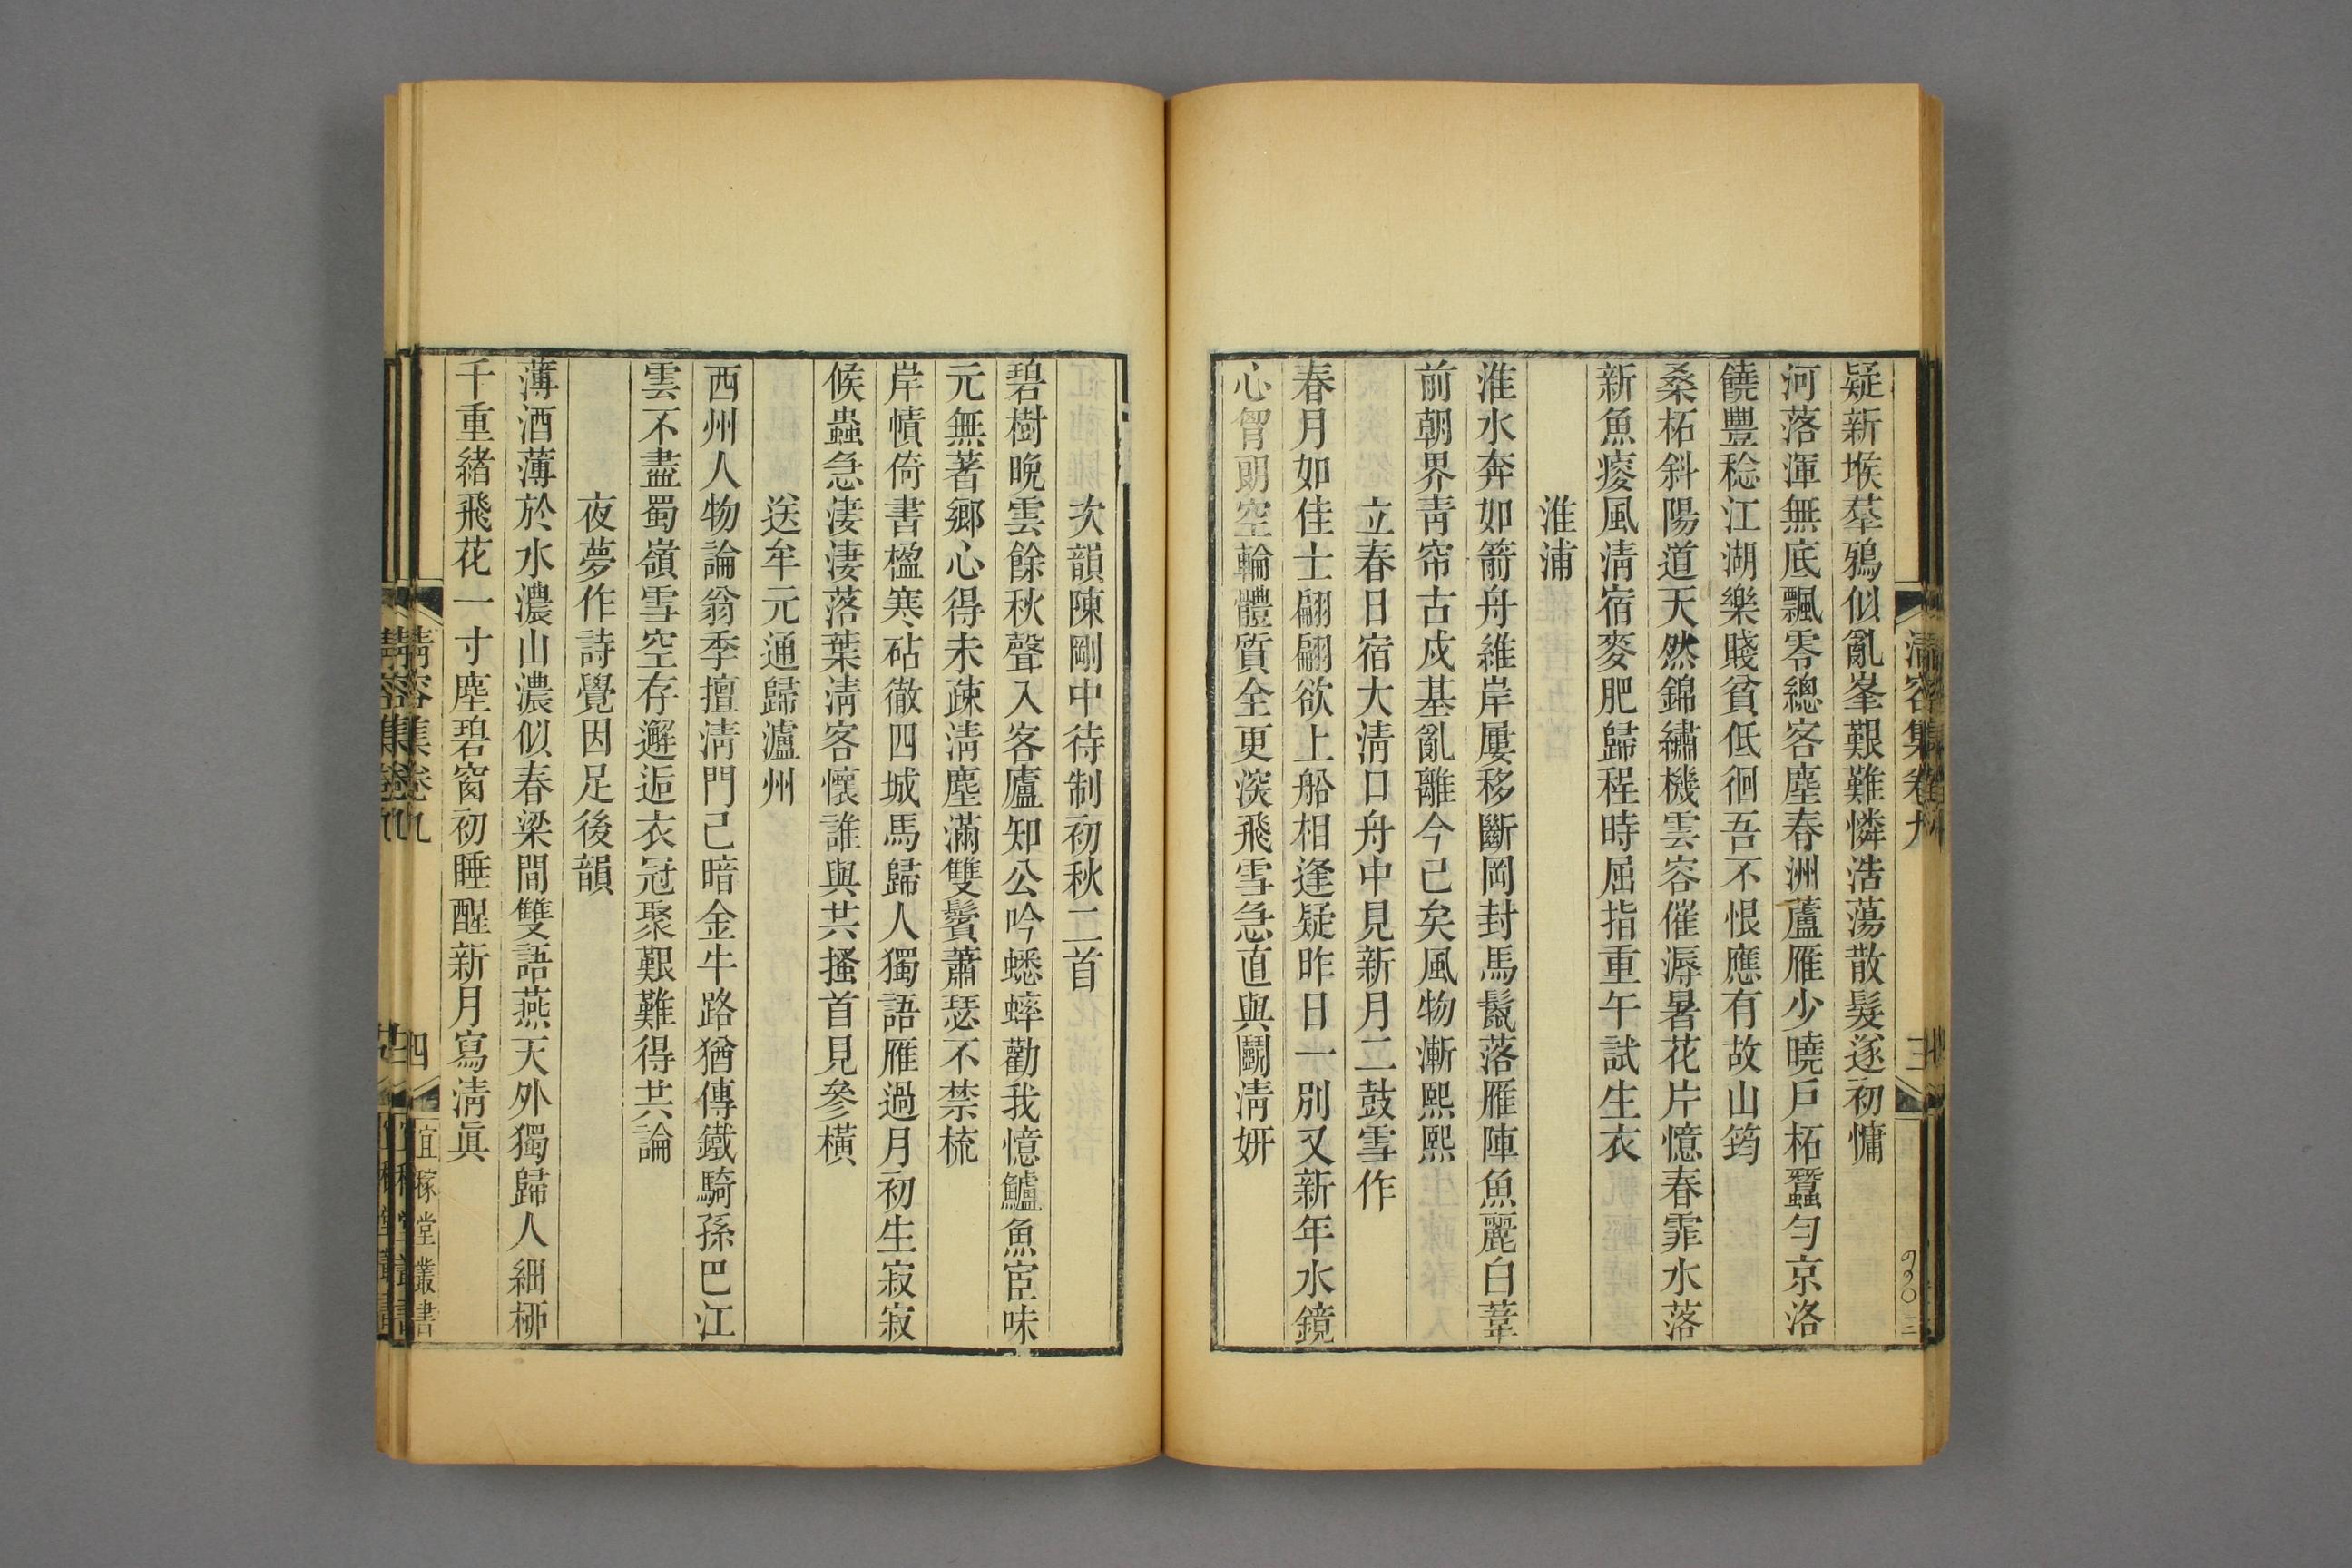 疑新堠羣鴉似亂峯艱難憐浩蕩散髮遂初慵
河落渾無底飄零總客塵春洲蘆雁少曉戶柘蠶勻京洛
饒豐稔江湖樂賤貧低徊吾不恨應有故山筠
桑柘斜陽道天然錦繡機雲容催溽暑花片憶春霏水落
新魚痩風清宿麥肥歸程時屈指重午試生衣
淮浦
淮水奔如箭舟維岸屢移斷岡封馬鬛落雁陣魚麗白葦
前朝界青帘古戍基亂離今已矣風物漸熙熙
立春日宿大清口舟中見新月二鼓雪作
春月如佳士翩翩欲上船相逢疑昨日一別又新年水鏡
心智朗空輪體質全更深飛雪急直與鬭清妍
清容集卷九
三
次韻陳剛中待制初秋二首
碧樹晚雲餘秋聲入客廬知公吟蟋蟀勸我憶鱸魚宦味
元無著鄉心得未疎清塵滿雙鬢蕭瑟不禁梳
岸幘倚書楹寒砧徹四城馬歸人獨語雁過月初生寂寂
候蟲急淒淒落葉清客懷誰與共搔首見參橫
送牟元通歸瀘州
西州人物論翁季擅清門已暗金牛路猶傳鐵騎孫巴江
雲不盡蜀嶺雪空存邂逅衣冠聚艱難得共論
夜夢作詩覺因足後韻
薄酒薄於水濃山濃似春梁間雙語燕天外獨歸人細桺
千重緒飛花一寸塵碧窗初睡醒新月寫清眞
清容集卷九
四
宜稼堂叢書